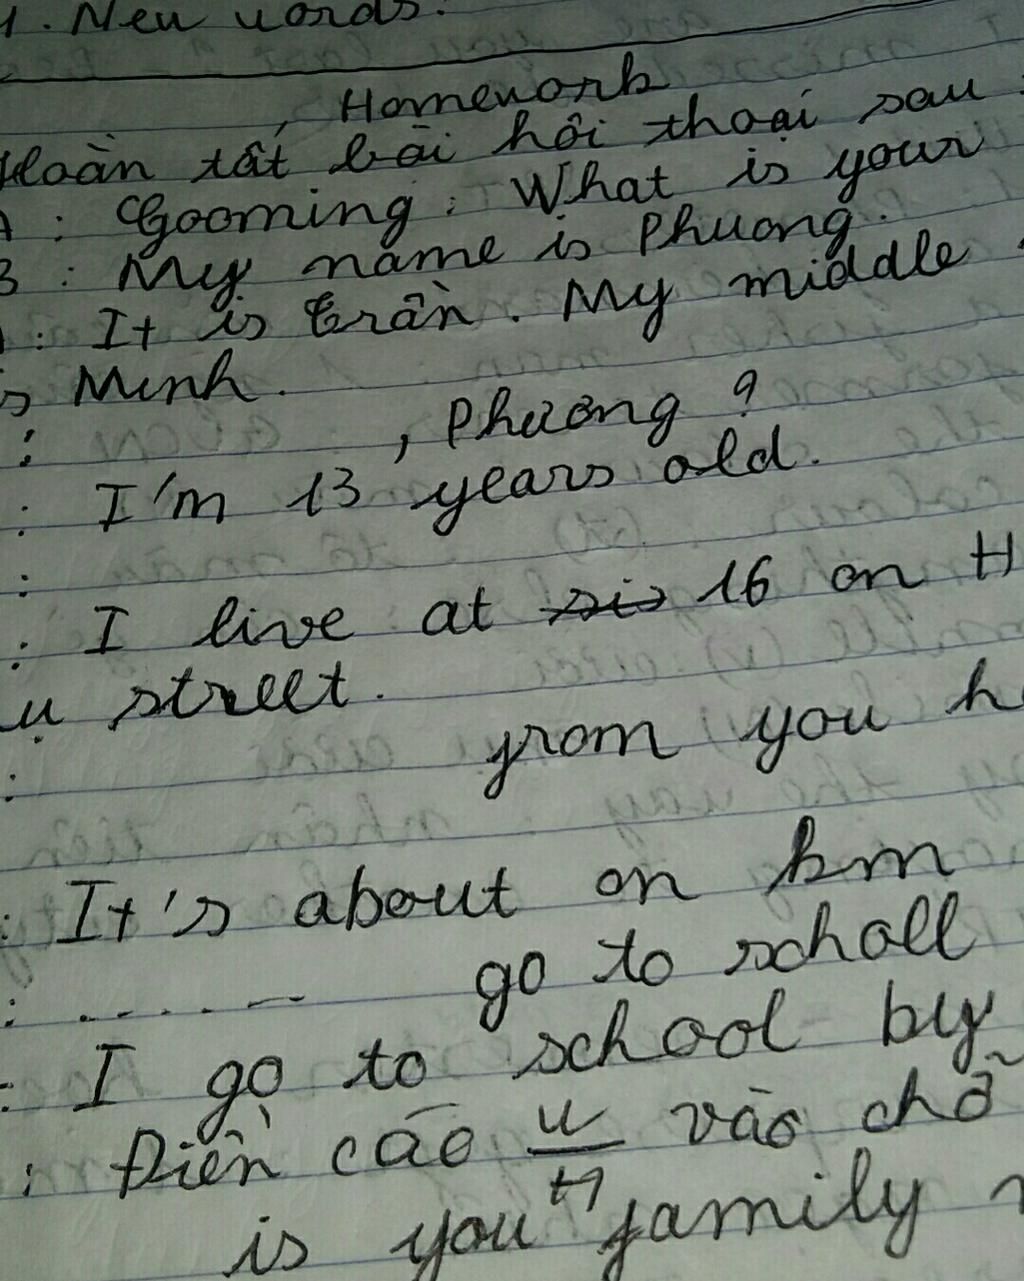 1. New words.
Homework
Hoàn tất bài hôi thoại sau :
A : Gooming : What is your
B : My name is Phuong.
A : It is Trần. My middle
is Minh.
: , Phương ?
: I'm 13 years old.
:
: I live at 16 on H
ụ street.
: from you h
: It's about on km
: ..... go to scholl
: I go to school by
: Điền các W/H vào chỗ
is you family